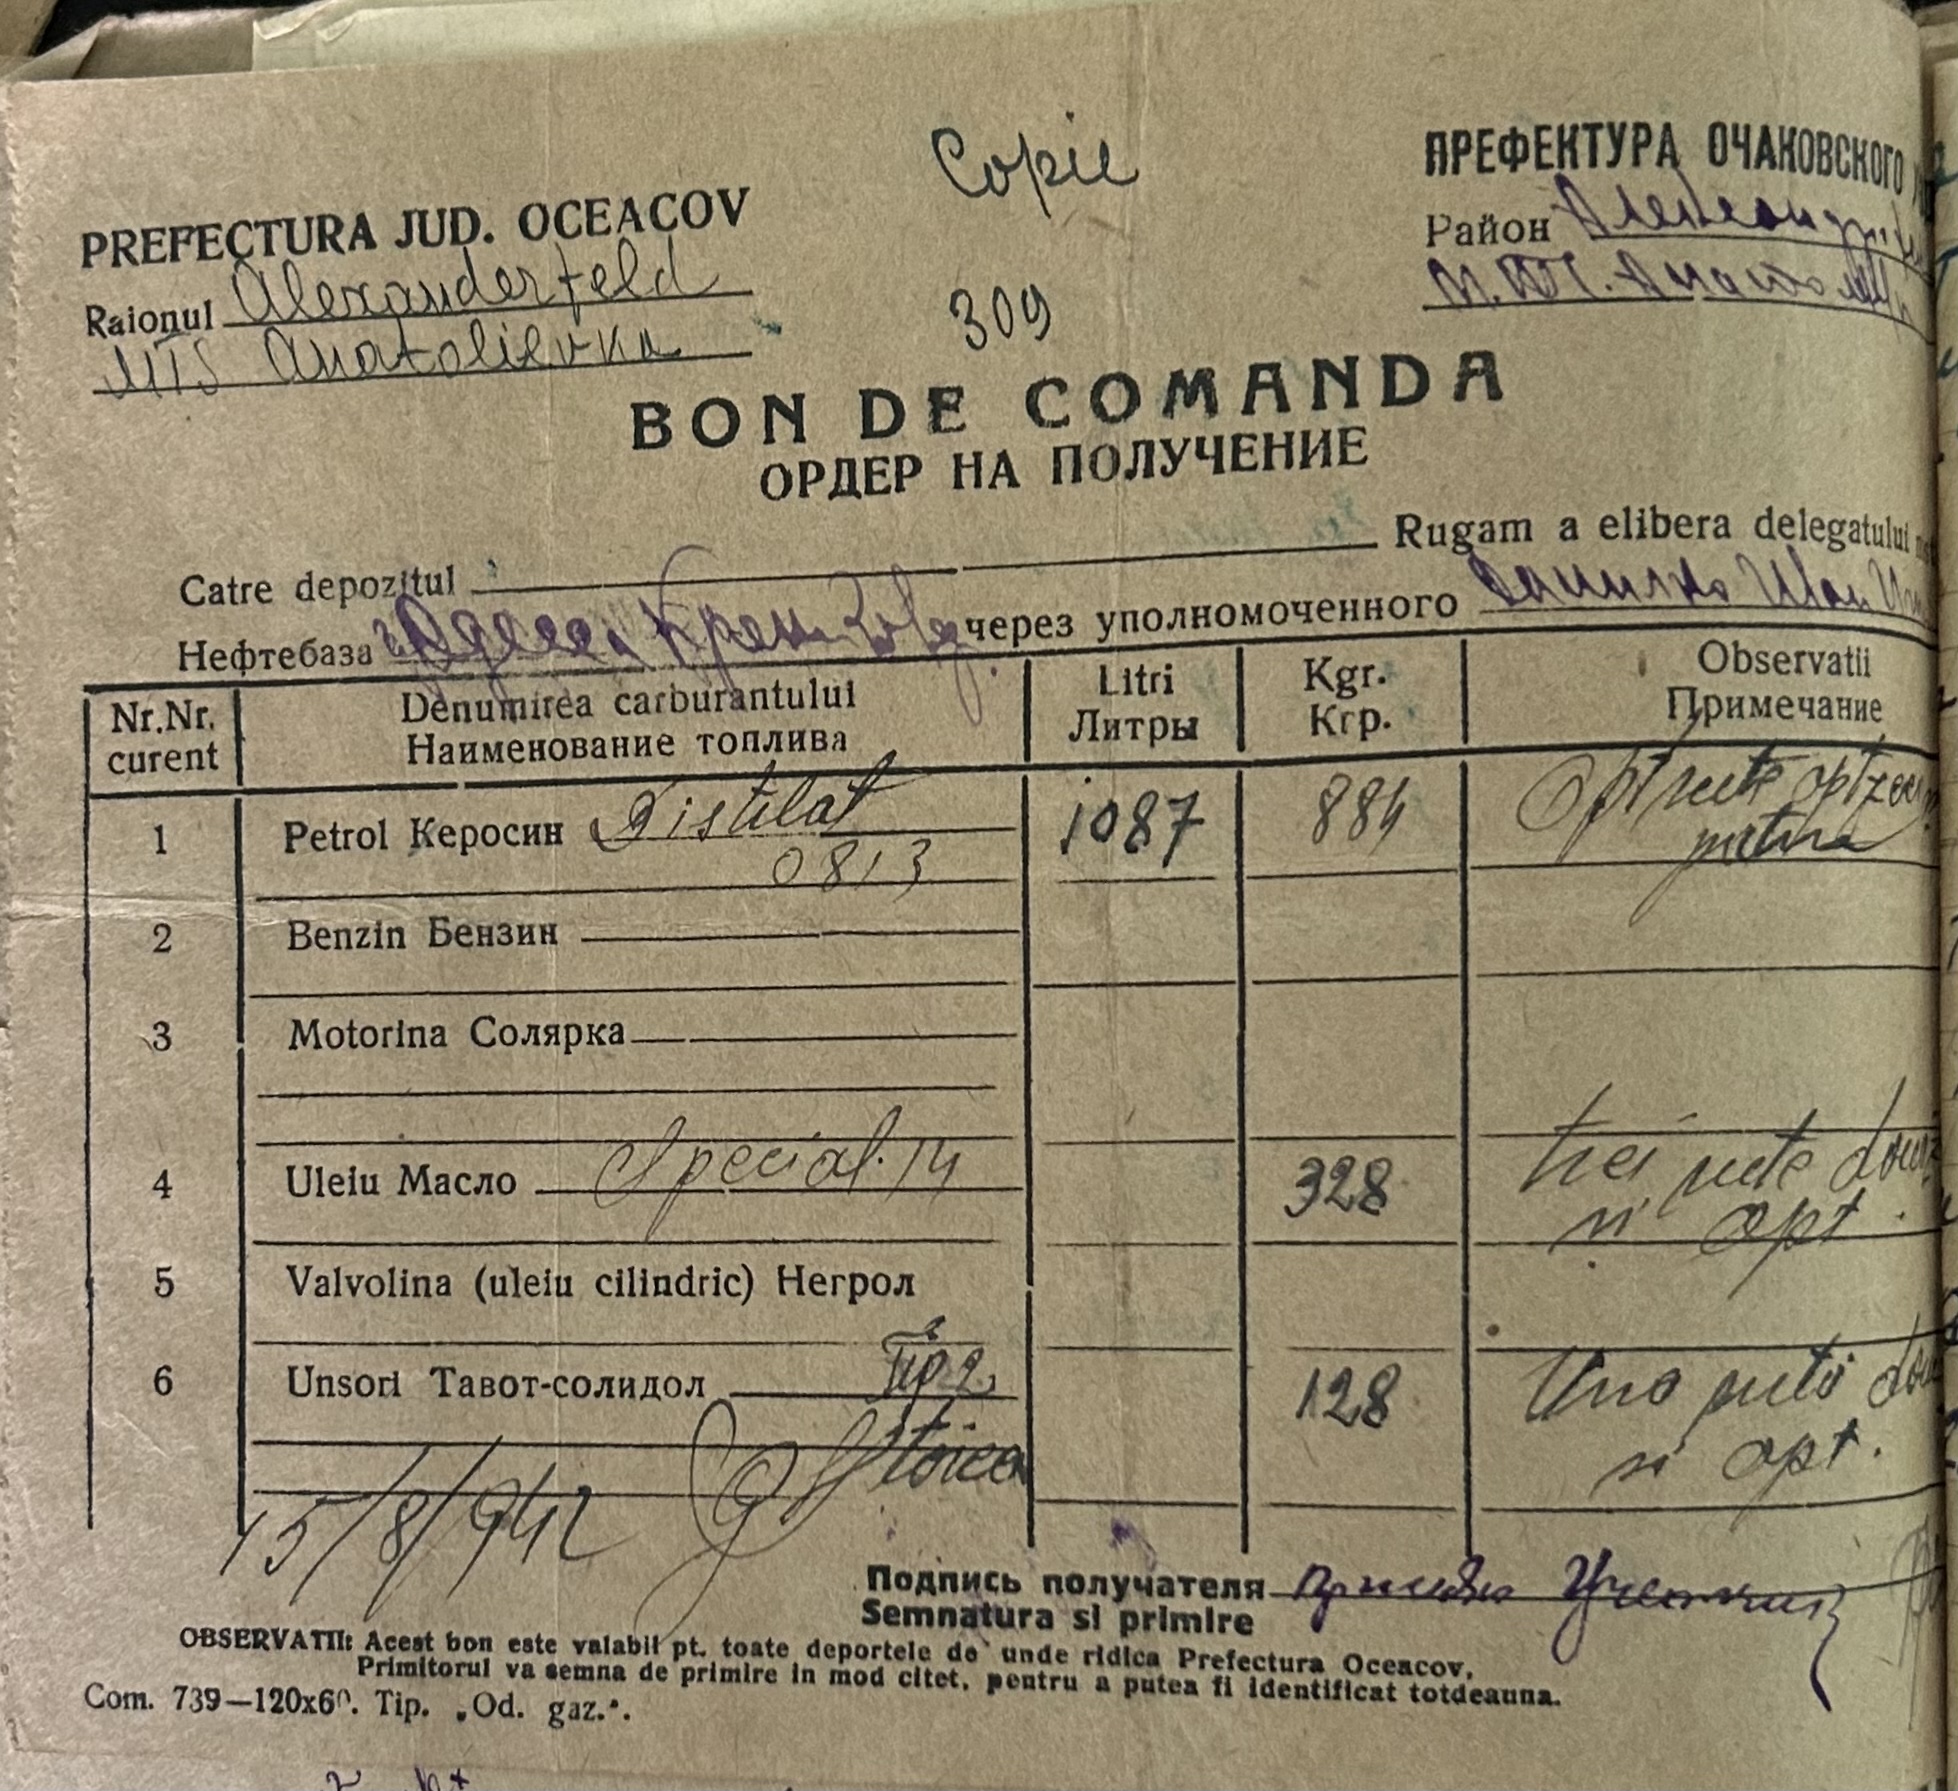 Copie
PREFECTURA JUD. OCEACOV
ПРЕФЕКТУРА ОЧАКОВСКОГО
Raionul Alexanderfeld
Район
MTS Anatolievka
309
BON DE COMANDA
ОРДЕР НА ПОЛУЧЕНИЕ
Catre depozitul Rugam a elibera delegatului
Нефтебаза через уполномоченного
Nr.Nr. curent
Denumirea carburantului
Наименование топлива
Litri
Литры
Kgr.
Кгр.
Observatii
Примечание
1 Petrol Керосин Distilat 1087 884 Opt sute
0813 patru
2 Benzin Бензин
3 Motorina Солярка
4 Uleiu Масло Special 14 328 trei sute
si opt.
5 Valvolina (uleiu cilindric) Негрол
6 Unsori Тавот-солидол 128 Una suta
si opt.
15/8/942 Stoica
Подпись получателя
Semnatura si primire
OBSERVATII: Acest bon este valabil pt. toate deportele de unde ridica Prefectura Oceacov,
Primitorul va semna de primire in mod citet, pentru a putea fi identificat totdeauna.
Com. 739—120x60. Tip. „Od. gaz.".